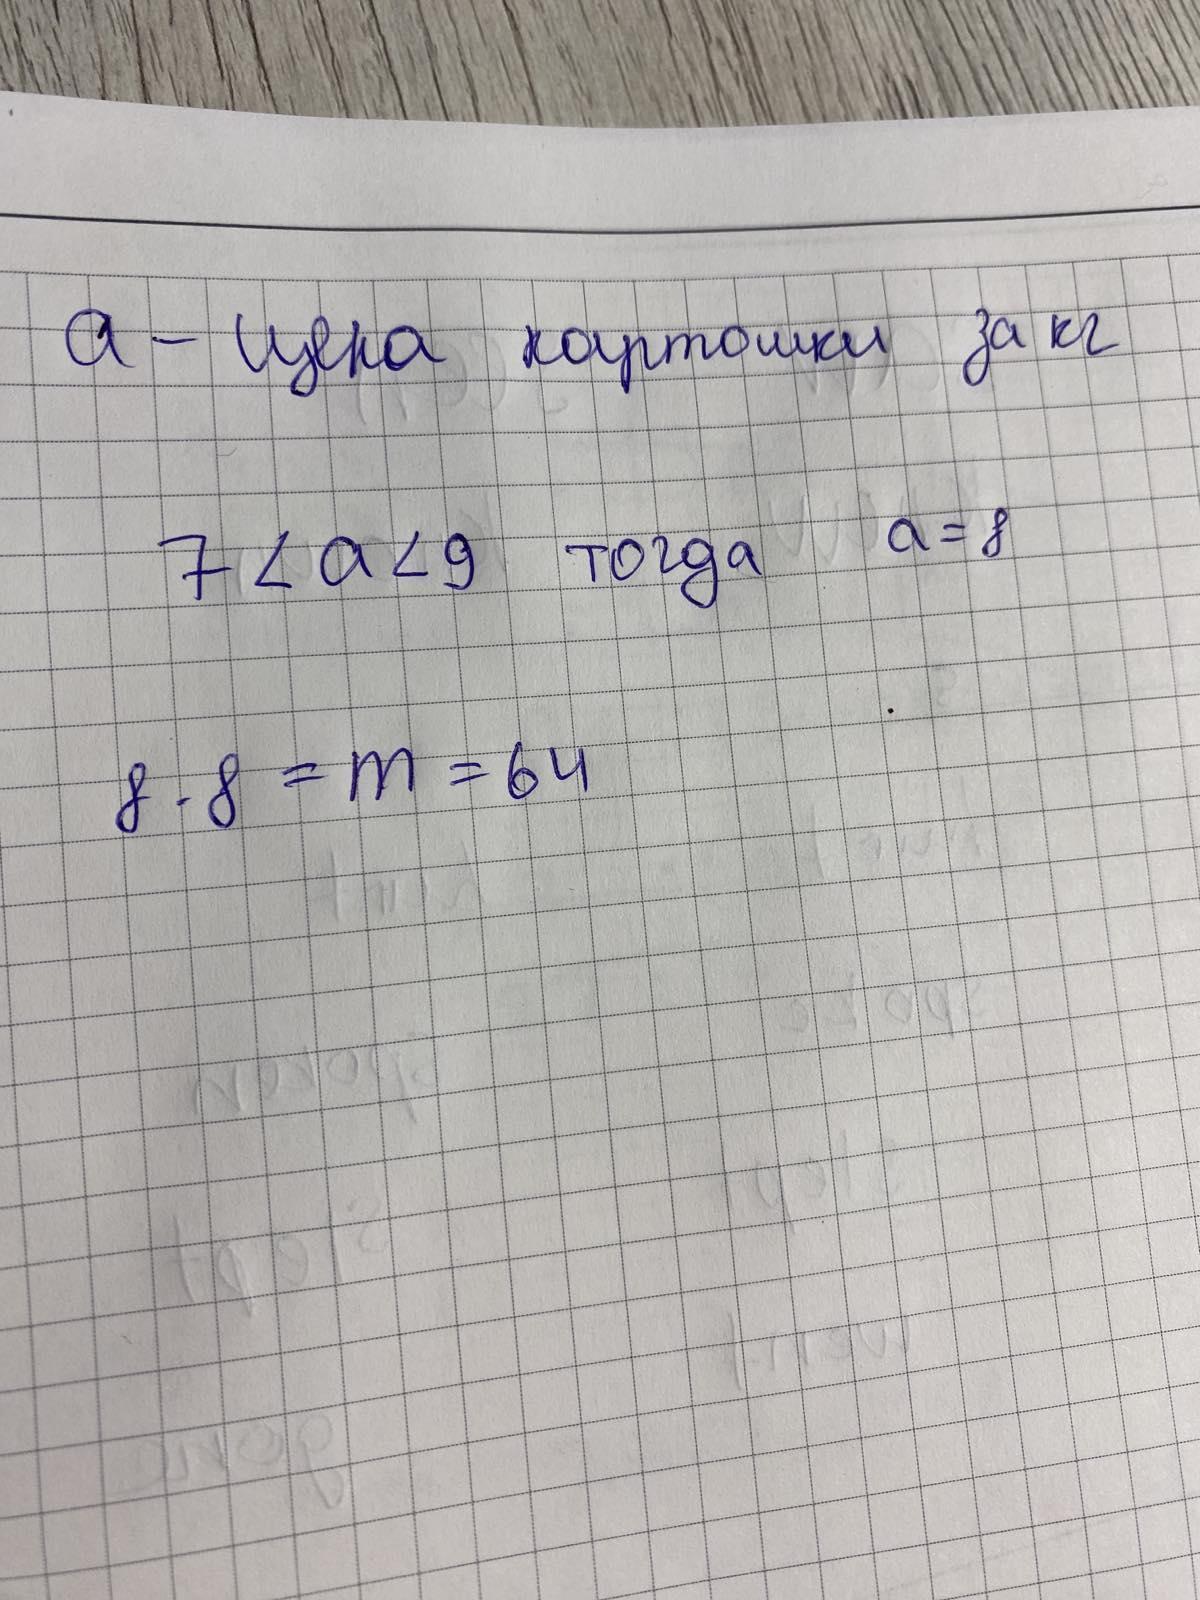 a – цена картошки за кг
7 < a < 9 тогда a = 8
8 · 8 = m = 64